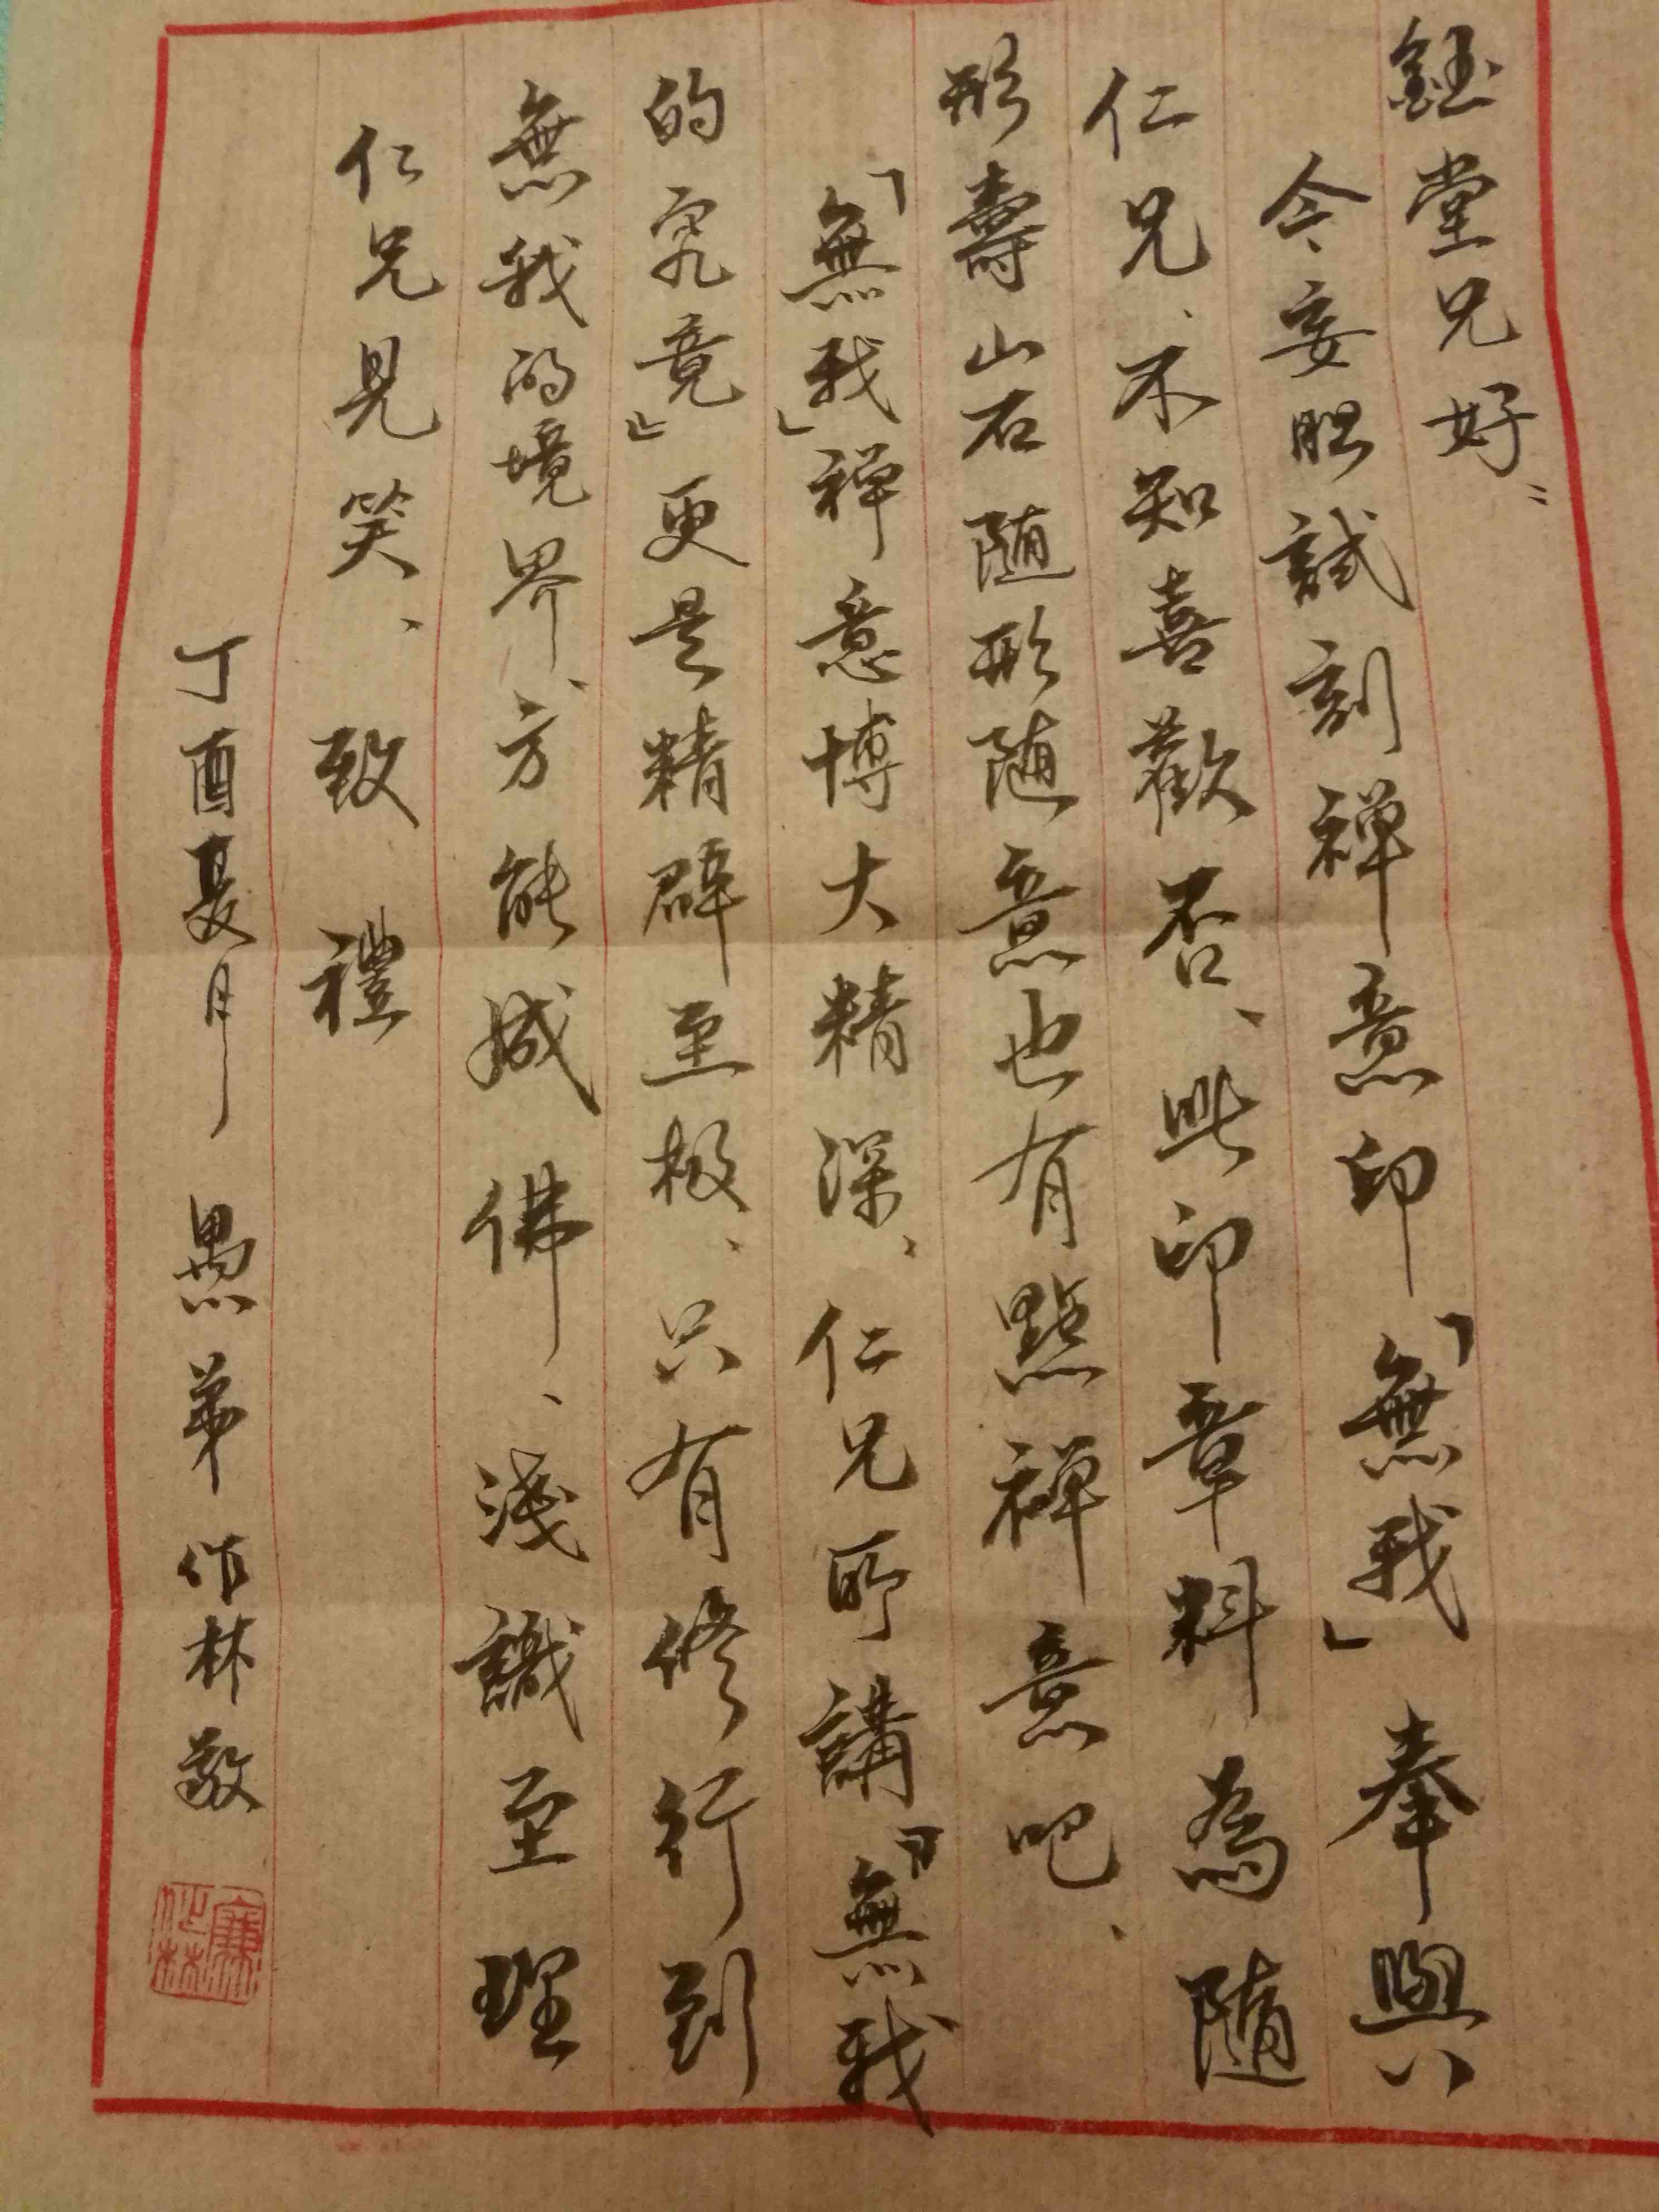 鈺堂兄好：
今妄胆試刻禅意印「無我」奉與
仁兄、不知喜歡否、此印章料為隨
形壽山石随形随意也有點禅意吧、
「無我」禅意博大精深、仁兄所講『無我
的究竟』更是精辟至极、只有修行到
無我的境界、方能成佛、淺識至理
仁兄見笑、致禮
丁酉夏月 愚弟作林敬